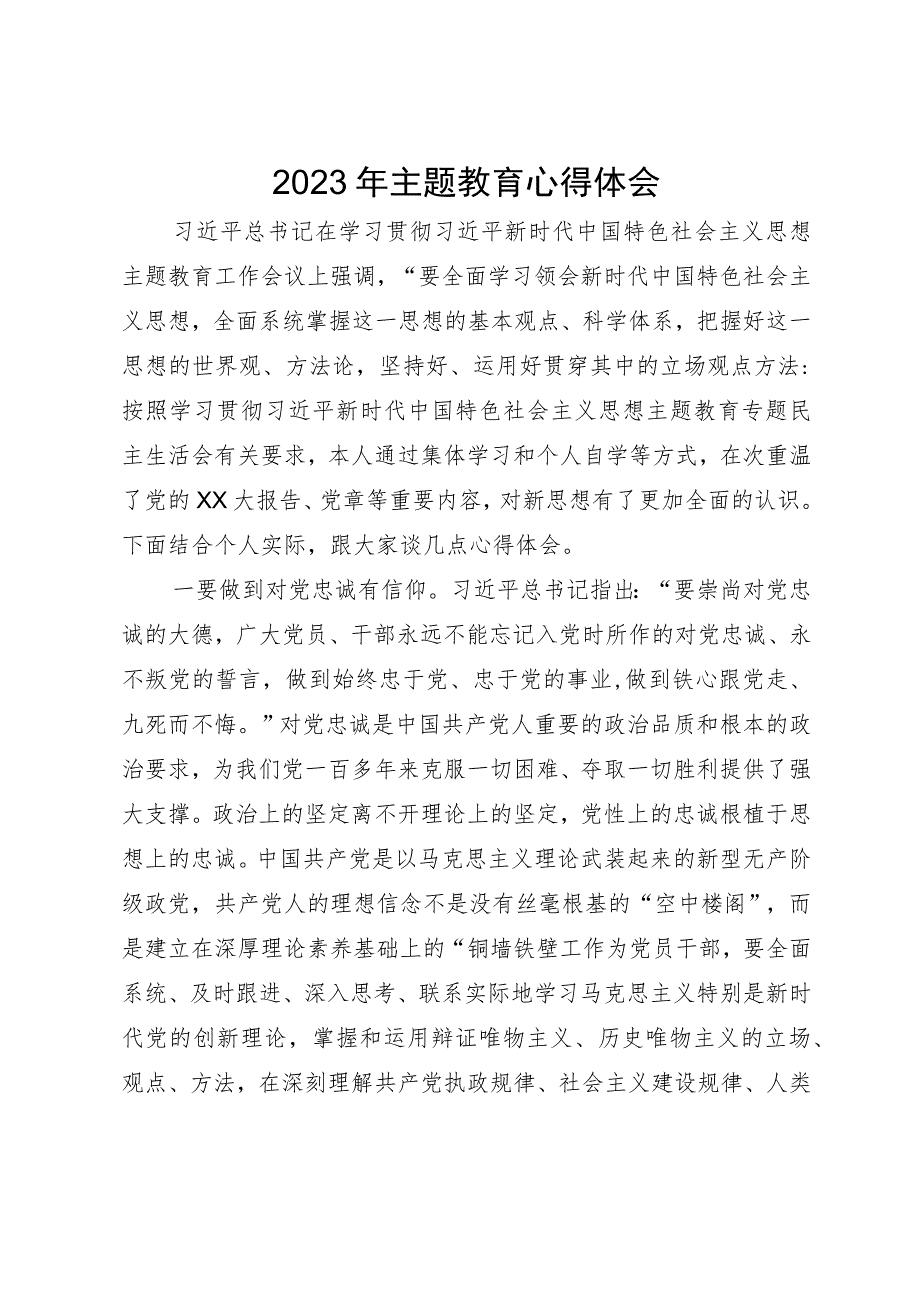 2023年主题教育心得体会
习近平总书记在学习贯彻习近平新时代中国特色社会主义思想
主题教育工作会议上强调，“要全面学习领会新时代中国特色社会主
义思想，全面系统掌握这一思想的基本观点、科学体系，把握好这一
思想的世界观、方法论，坚持好、运用好贯穿其中的立场观点方法:
按照学习贯彻习近平新时代中国特色社会主义思想主题教育专题民
主生活会有关要求，本人通过集体学习和个人自学等方式，在次重温
了党的XX大报告、党章等重要内容，对新思想有了更加全面的认识。
下面结合个人实际，跟大家谈几点心得体会。
一要做到对党忠诚有信仰。习近平总书记指出：“要崇尚对党忠
诚的大德，广大党员、干部永远不能忘记入党时所作的对党忠诚、永
不叛党的誓言，做到始终忠于党、忠于党的事业,做到铁心跟党走、
九死而不悔。”对党忠诚是中国共产党人重要的政治品质和根本的政
治要求，为我们党一百多年来克服一切困难、夺取一切胜利提供了强
大支撑。政治上的坚定离不开理论上的坚定，党性上的忠诚根植于思
想上的忠诚。中国共产党是以马克思主义理论武装起来的新型无产阶
级政党，共产党人的理想信念不是没有丝毫根基的“空中楼阁”，而
是建立在深厚理论素养基础上的“铜墙铁壁工作为党员干部，要全面
系统、及时跟进、深入思考、联系实际地学习马克思主义特别是新时
代党的创新理论，掌握和运用辩证唯物主义、历史唯物主义的立场、
观点、方法，在深刻理解共产党执政规律、社会主义建设规律、人类